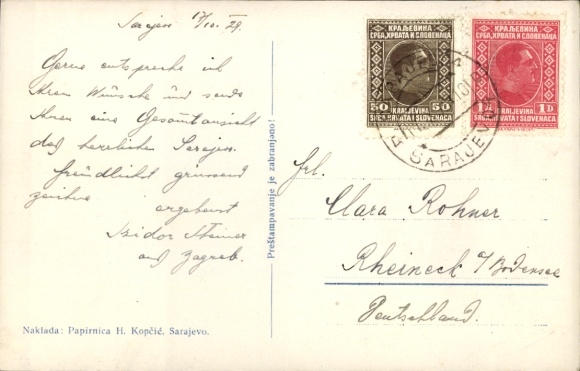 Sarajevo 17/10.29.
Gerne entspreche ich
Ihren Wünsche und sende
Ihnen eine Gesamtansicht
des herrlichen Sarajevo.
Freundlichst grüssend
zeichne
ergebenst
Isidor Steiner
aus Zagreb.
Naklada: Papirnica H. Kopčić, Sarajevo.
Preštampavanje je zabranjeno!
КРАЉЕВИНА
СРБА, ХРВАТА И СЛОВЕНАЦА
50 50
KRALJEVINA
SRBA, HRVATA I SLOVENACA
КРАЉЕВИНА
СРБА, ХРВАТА И СЛОВЕНАЦА
1Д 1D
KRALJEVINA
SRBA, HRVATA I SLOVENACA
SARAJEVO
Frl.
Clara Rohner
Rheineck a/Bodensee
Deutschland.